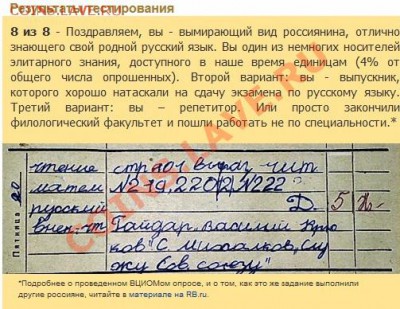 Результаты тестирования
8 из 8 - Поздравляем, вы - вымирающий вид россиянина, отлично
знающего свой родной русский язык. Вы один из немногих носителей
элитарного знания, доступного в наше время единицам (4% от
общего числа опрошенных). Второй вариант: вы - выпускник,
которого хорошо натаскали на сдачу экзамена по русскому языку.
Третий вариант: вы – репетитор. Или просто закончили
филологический факультет и пошли работать не по специальности.*
COINS.LAVE.RU
Пятница 20
чтение стр 201 выраз. чит.
матем №219, 220(2), №222
русский 5
внек. чт Гайдар. Василий Крю
ков" С. Михалков, Слу
жу Сов. союзу"
*Подробнее о проведенном ВЦИОМом опросе, и о том, как это же задание выполнили
другие россияне, читайте в материале на RB.ru.